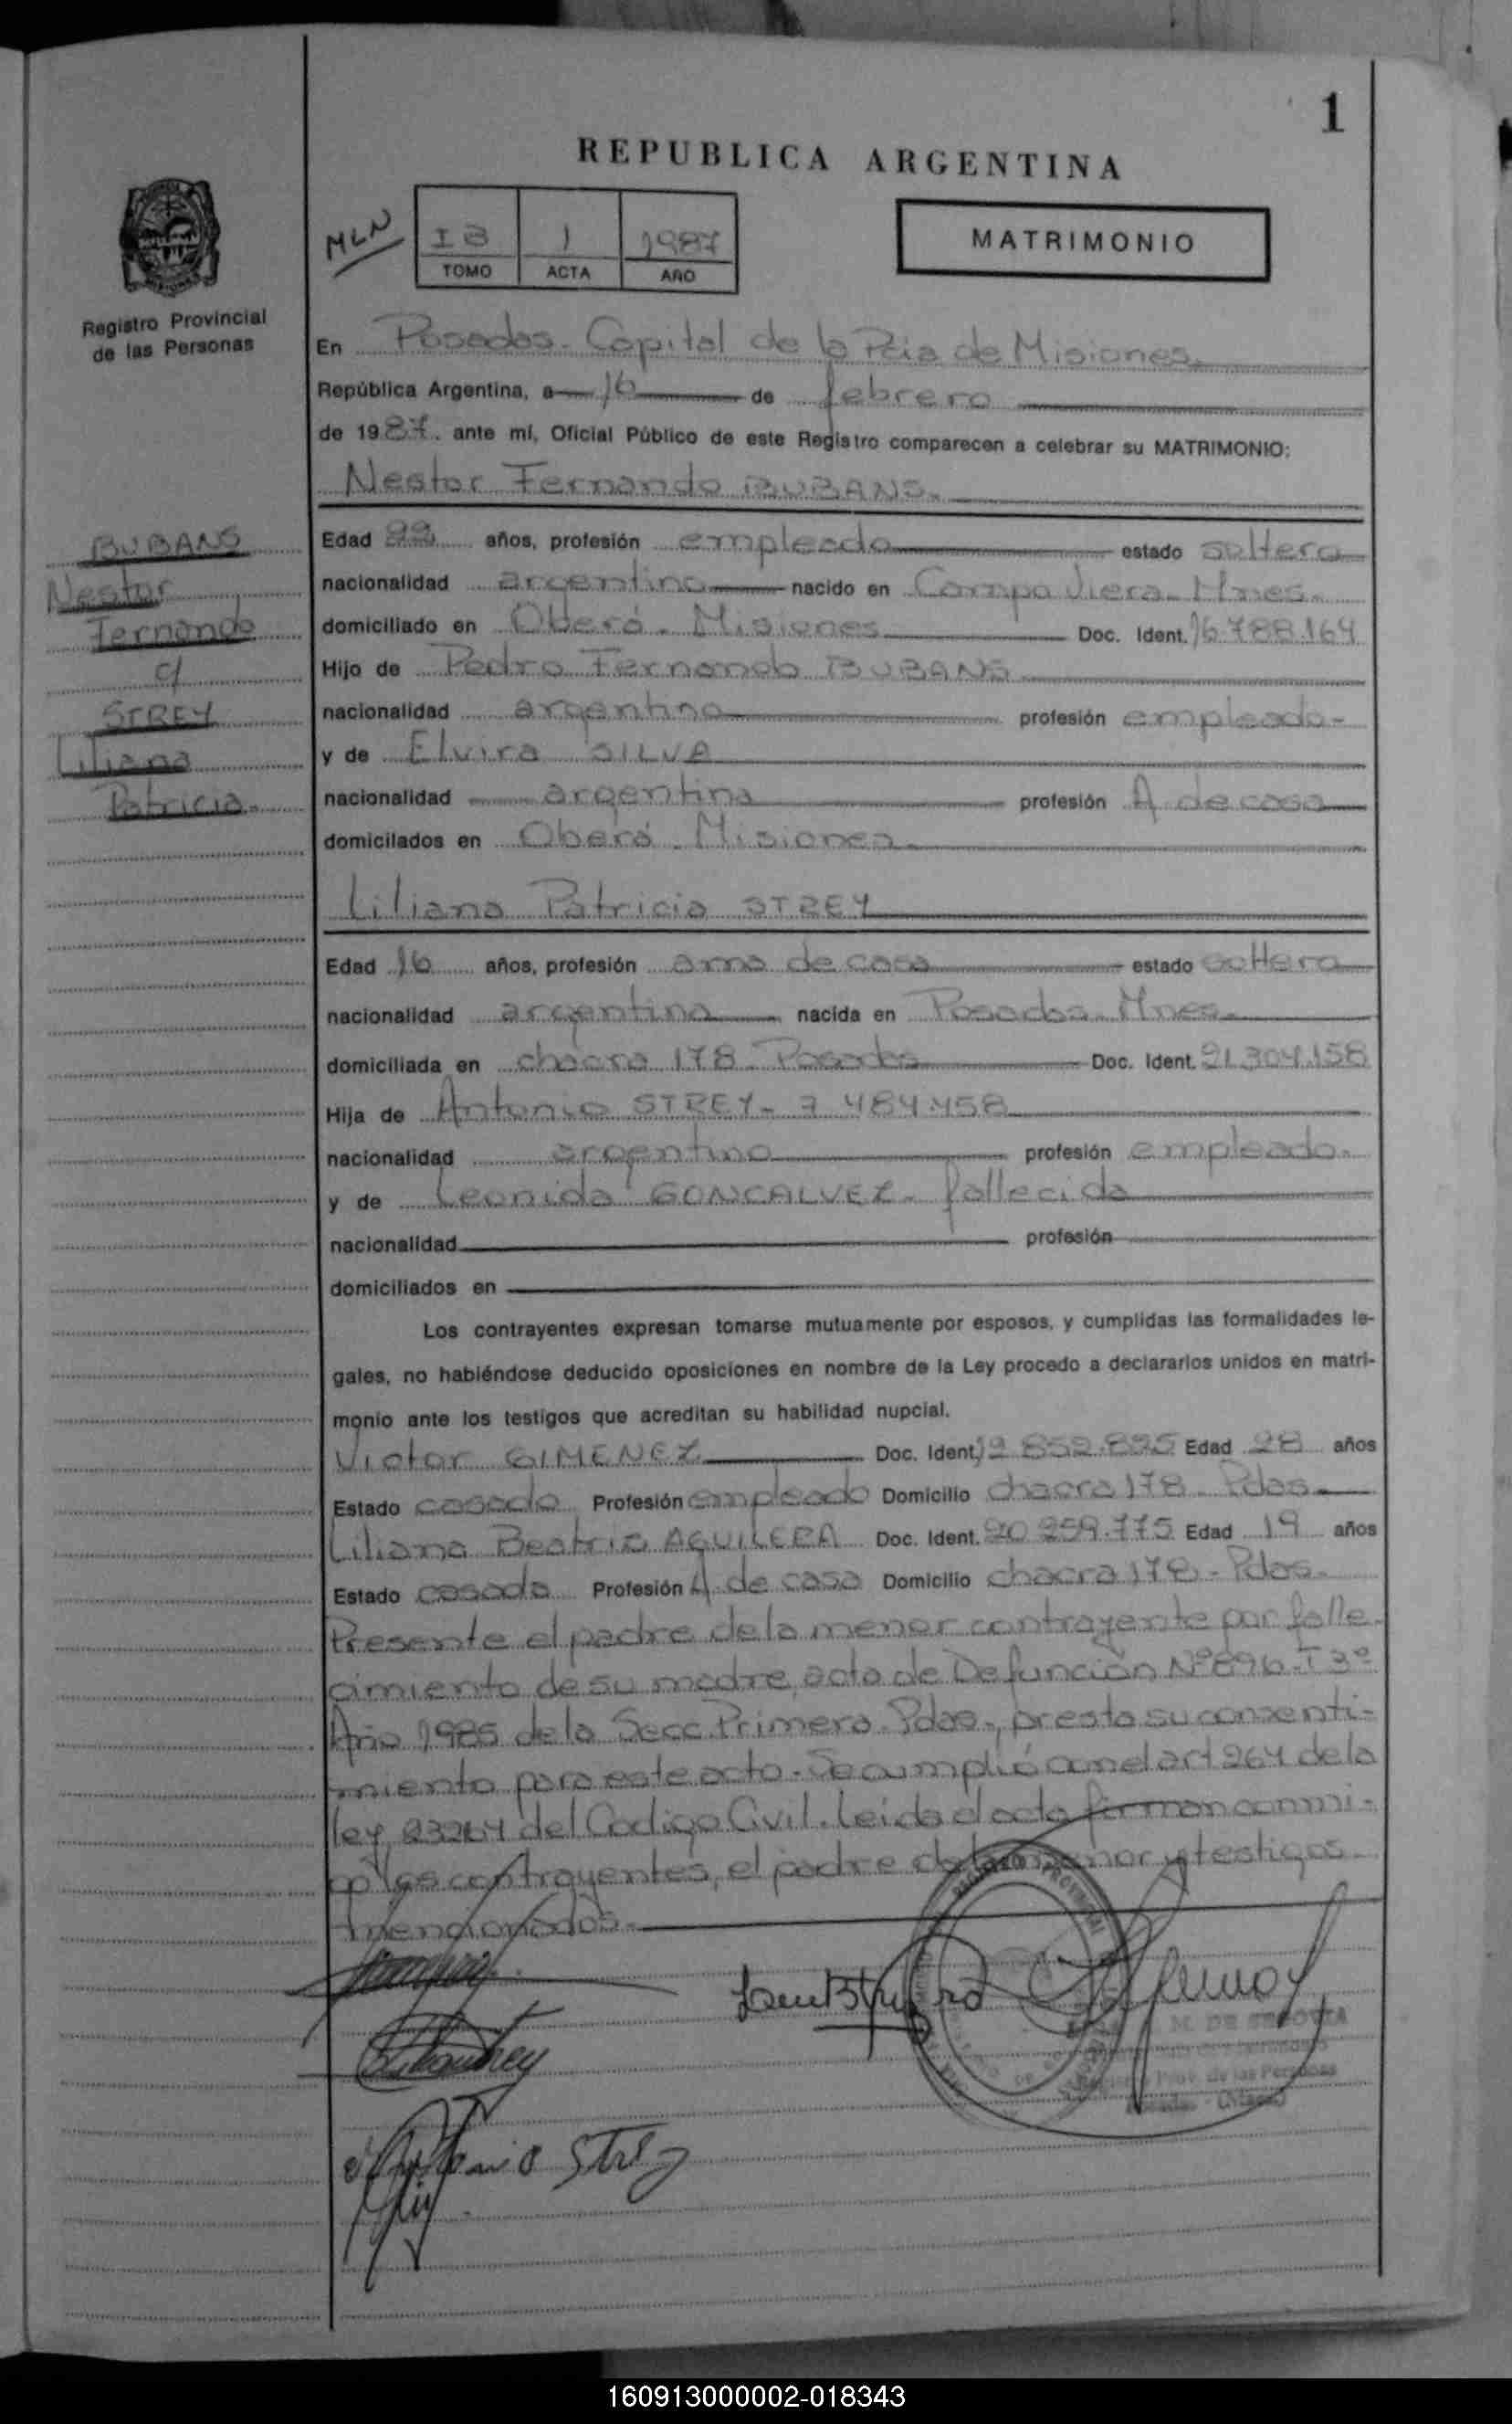 1
REPUBLICA ARGENTINA
MLN
IB 1 1987
TOMO ACTA AÑO
MATRIMONIO
Registro Provincial
de las Personas
En Posadas. Capital de la Pcia de Misiones.
República Argentina, a 16 de febrero
de 1987. ante mí, Oficial Público de este Registro comparecen a celebrar su MATRIMONIO:
Nestor Fernando BUBANS.
BUBANS
Nestor
Fernando
c/
STREY
Liliana
Patricia.
Edad 22 años, profesión empleado estado soltero
nacionalidad argentino nacido en Campo Viera. Mnes.
domiciliado en Oberá. Misiones Doc. Ident. 16.788.164
Hijo de Pedro Fernando BUBANS
nacionalidad argentino profesión empleado.
y de Elvira SILVA
nacionalidad argentina profesión A de casa
domicilados en Oberá. Misiones.
Liliana Patricia STREY
Edad 16 años, profesión ama de casa estado soltera
nacionalidad argentina nacida en Posadas. Mnes.
domiciliada en chacra 178. Posadas Doc. Ident. 21.304.158
Hija de Antonio STREY. 7.484.458
nacionalidad argentino profesión empleado.
y de Leonida GONCALVEZ. fallecida
nacionalidad profesión
domiciliados en
Los contrayentes expresan tomarse mutuamente por esposos, y cumplidas las formalidades le-
gales, no habiéndose deducido oposiciones en nombre de la Ley procedo a declararlos unidos en matri-
monio ante los testigos que acreditan su habilidad nupcial.
Victor GIMENEZ Doc. Ident. 12.852.825 Edad 28 años
Estado casado Profesión empleado Domicilio chacra 178. Pdas.
Liliana Beatriz AGUILERA Doc. Ident. 20.259.775 Edad 19 años
Estado casada Profesión A de casa Domicilio chacra 178. Pdas.
Presente el padre de la menor contrayente por falle-
cimiento de su madre, acta de Defunción Nº 896. T 3º
Año 1985 de la Secc. Primera. Pdas., presta su consenti-
miento para este acto. Se cumplió con el art 264 de la
ley 23264 del Codigo Civil. Leida el acta firman conmi-
go los contrayentes, el padre de la menor y testigos
mencionados.
Antonio Strey
M. DE SEGOVIA
Prov. de las Personas
160913000002-018343